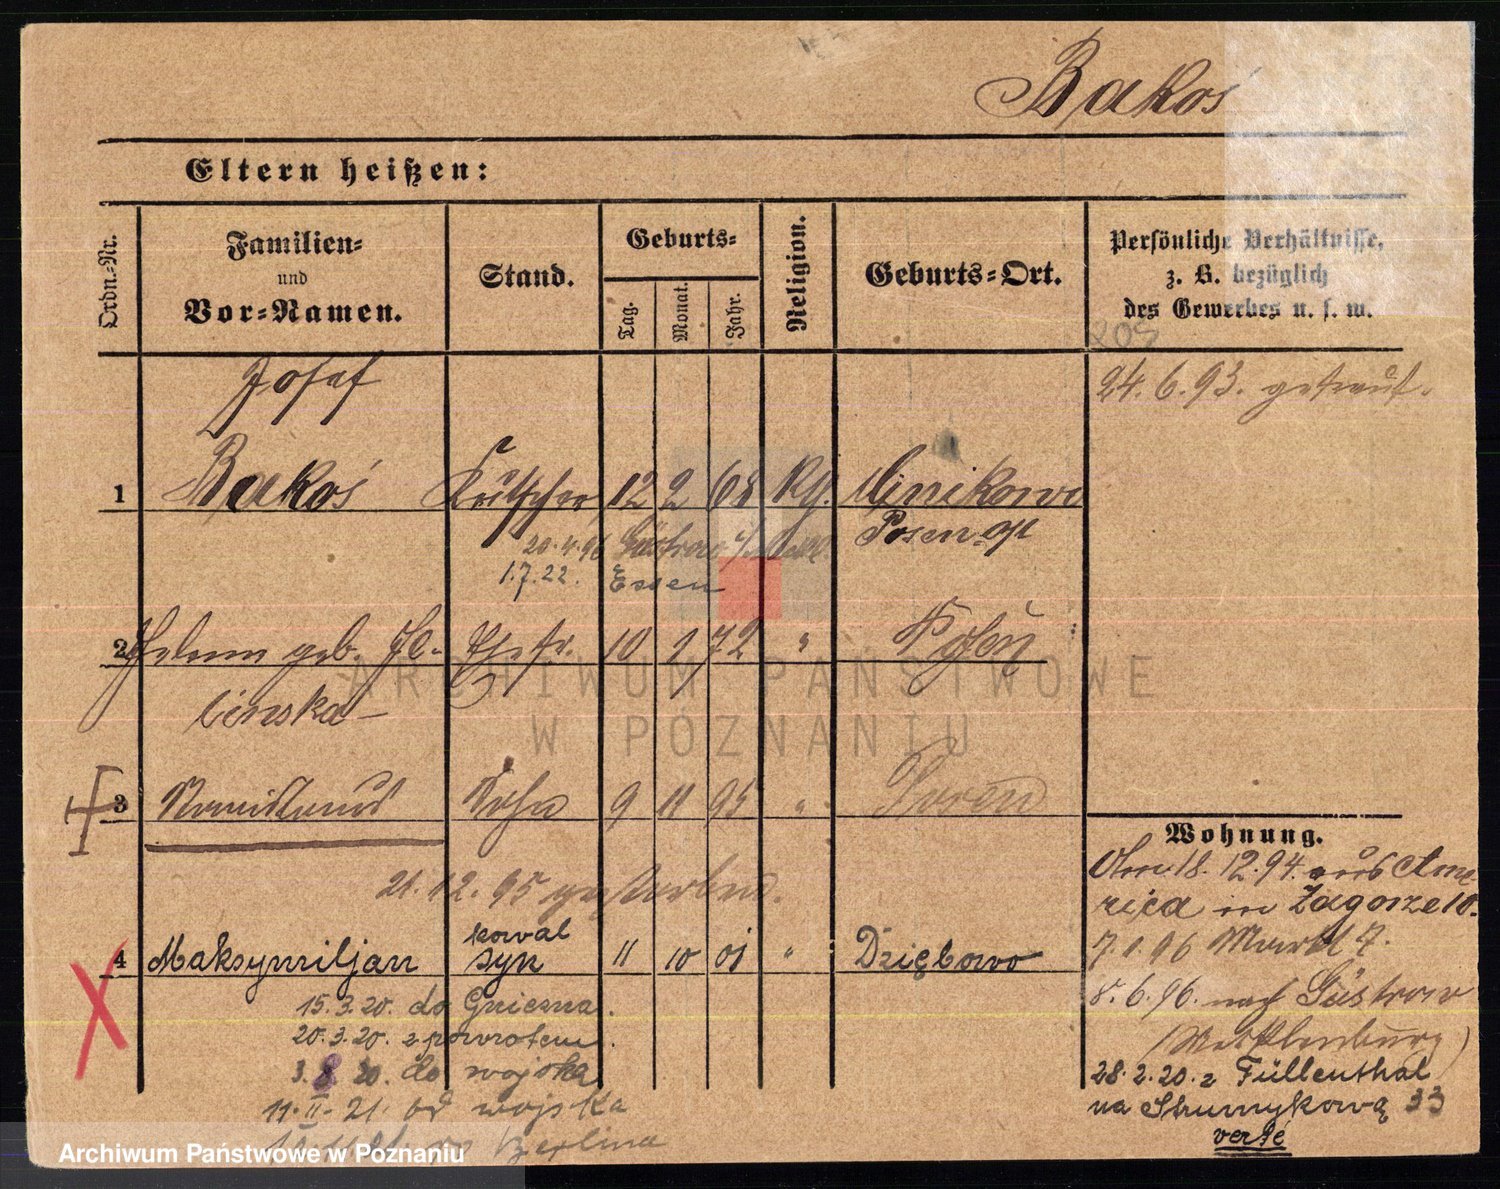 Bakoś
Eltern heißen:
Ordn.-Nr.
Familien-
und
Vor-Namen.
Stand.
Geburts-
Tag.
Monat.
Jahr.
Religion.
Geburts-Ort.
Persönliche Verhältnisse,
z. B. bezüglich
des Gewerbes u. s. w.
205
24.6.93. getraut.
Josef
1 Bakoś Kutscher 12 2 68 Kg. Posen-Ost
20.4.96 Güstrow
1.7.22. Essen
2 geb. Je- Ehefr. 10 1 72 " Posen
linska
3 Sohn 9 11 95 " Posen
21.12.95 gestorben.
4 Maksymiljan kowal
syn 11 10 01 " Dziębowo
15.3.20. do Gniezna.
20.3.20. z powrotem.
3.8.20. do wojska
11.II.21. od wojska
Berlina
Wohnung.
18.12.94. aus Ame-
rica in Zagorze 10.
7.1.96 Markt 7.
8.6.96. nach Güstrow
(Mecklenburg)
28.2.20. z Füllenthal
na Strumykową 33
verte
ARCHIWUM PAŃSTWOWE
W POZNANIU
Archiwum Państwowe w Poznaniu